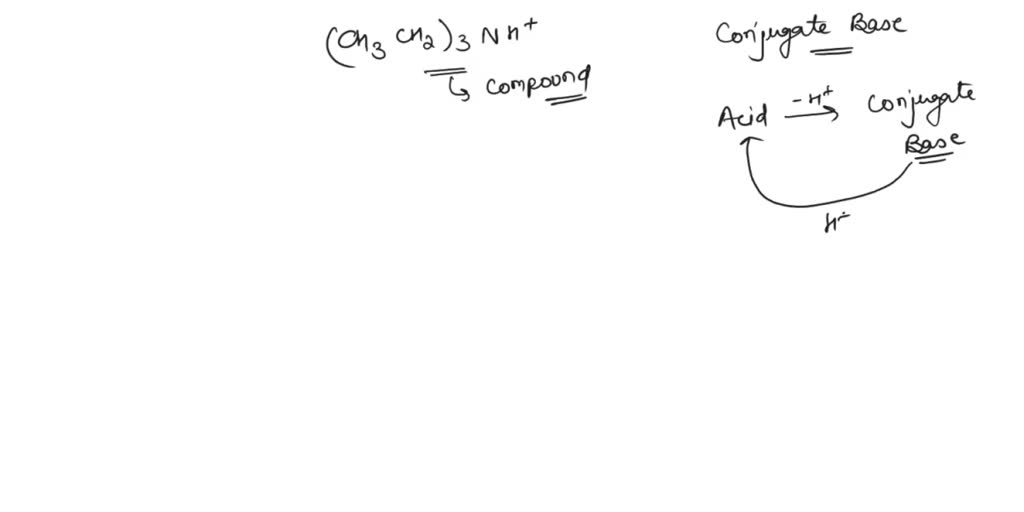 (CH3 CH2)3 NH+
↳ compound
Conjugate Base
Acid -H+→ Conjugate
Base
H+